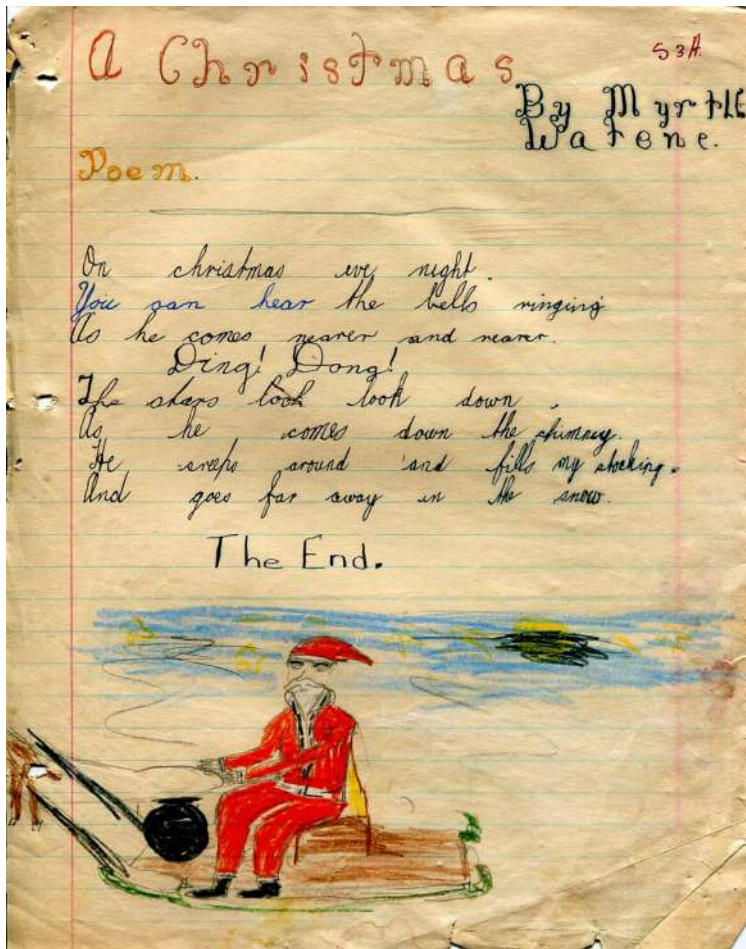 A Christmas
S3A.
By Myrtle
Watene.
Poem.
On christmas eve night.
You can hear the bells ringing
As he comes nearer and nearer.
Ding! Dong!
The stars look look down.
As he comes down the chimney.
He creeps around and fills my stocking.
And goes far away in the snow.
The End.